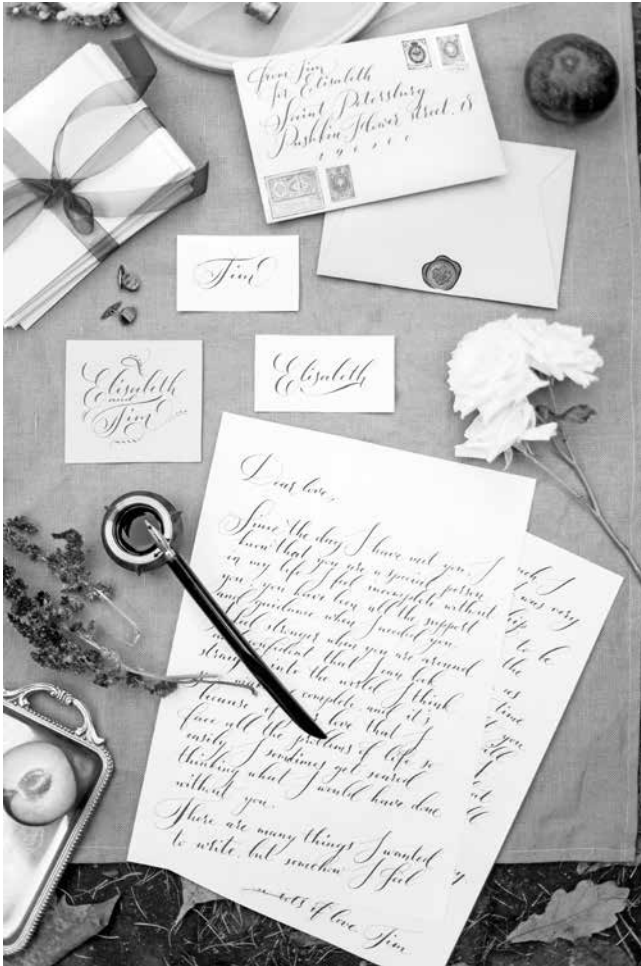 from Tim
for Elisabeth
Saint Petersburg
Pushkin Flower street, 18
Tim
Elisabeth
and
Tim
Elisabeth
Dear love,
Since the day I have met you, I
know that you are a special person
in my life I feel incomplete without
you, you have been all the support
and guidance when I needed you
feel stronger when you are around
confident that I can look
into the world I think
complete and it's
because of love that I
face all the problems of life so
easily I somtimes get scared
thinking what I would have done
without you.
There are many things I wanted
to write, but somehow I feel
of love Tim
I
was very
to be
the
time
you